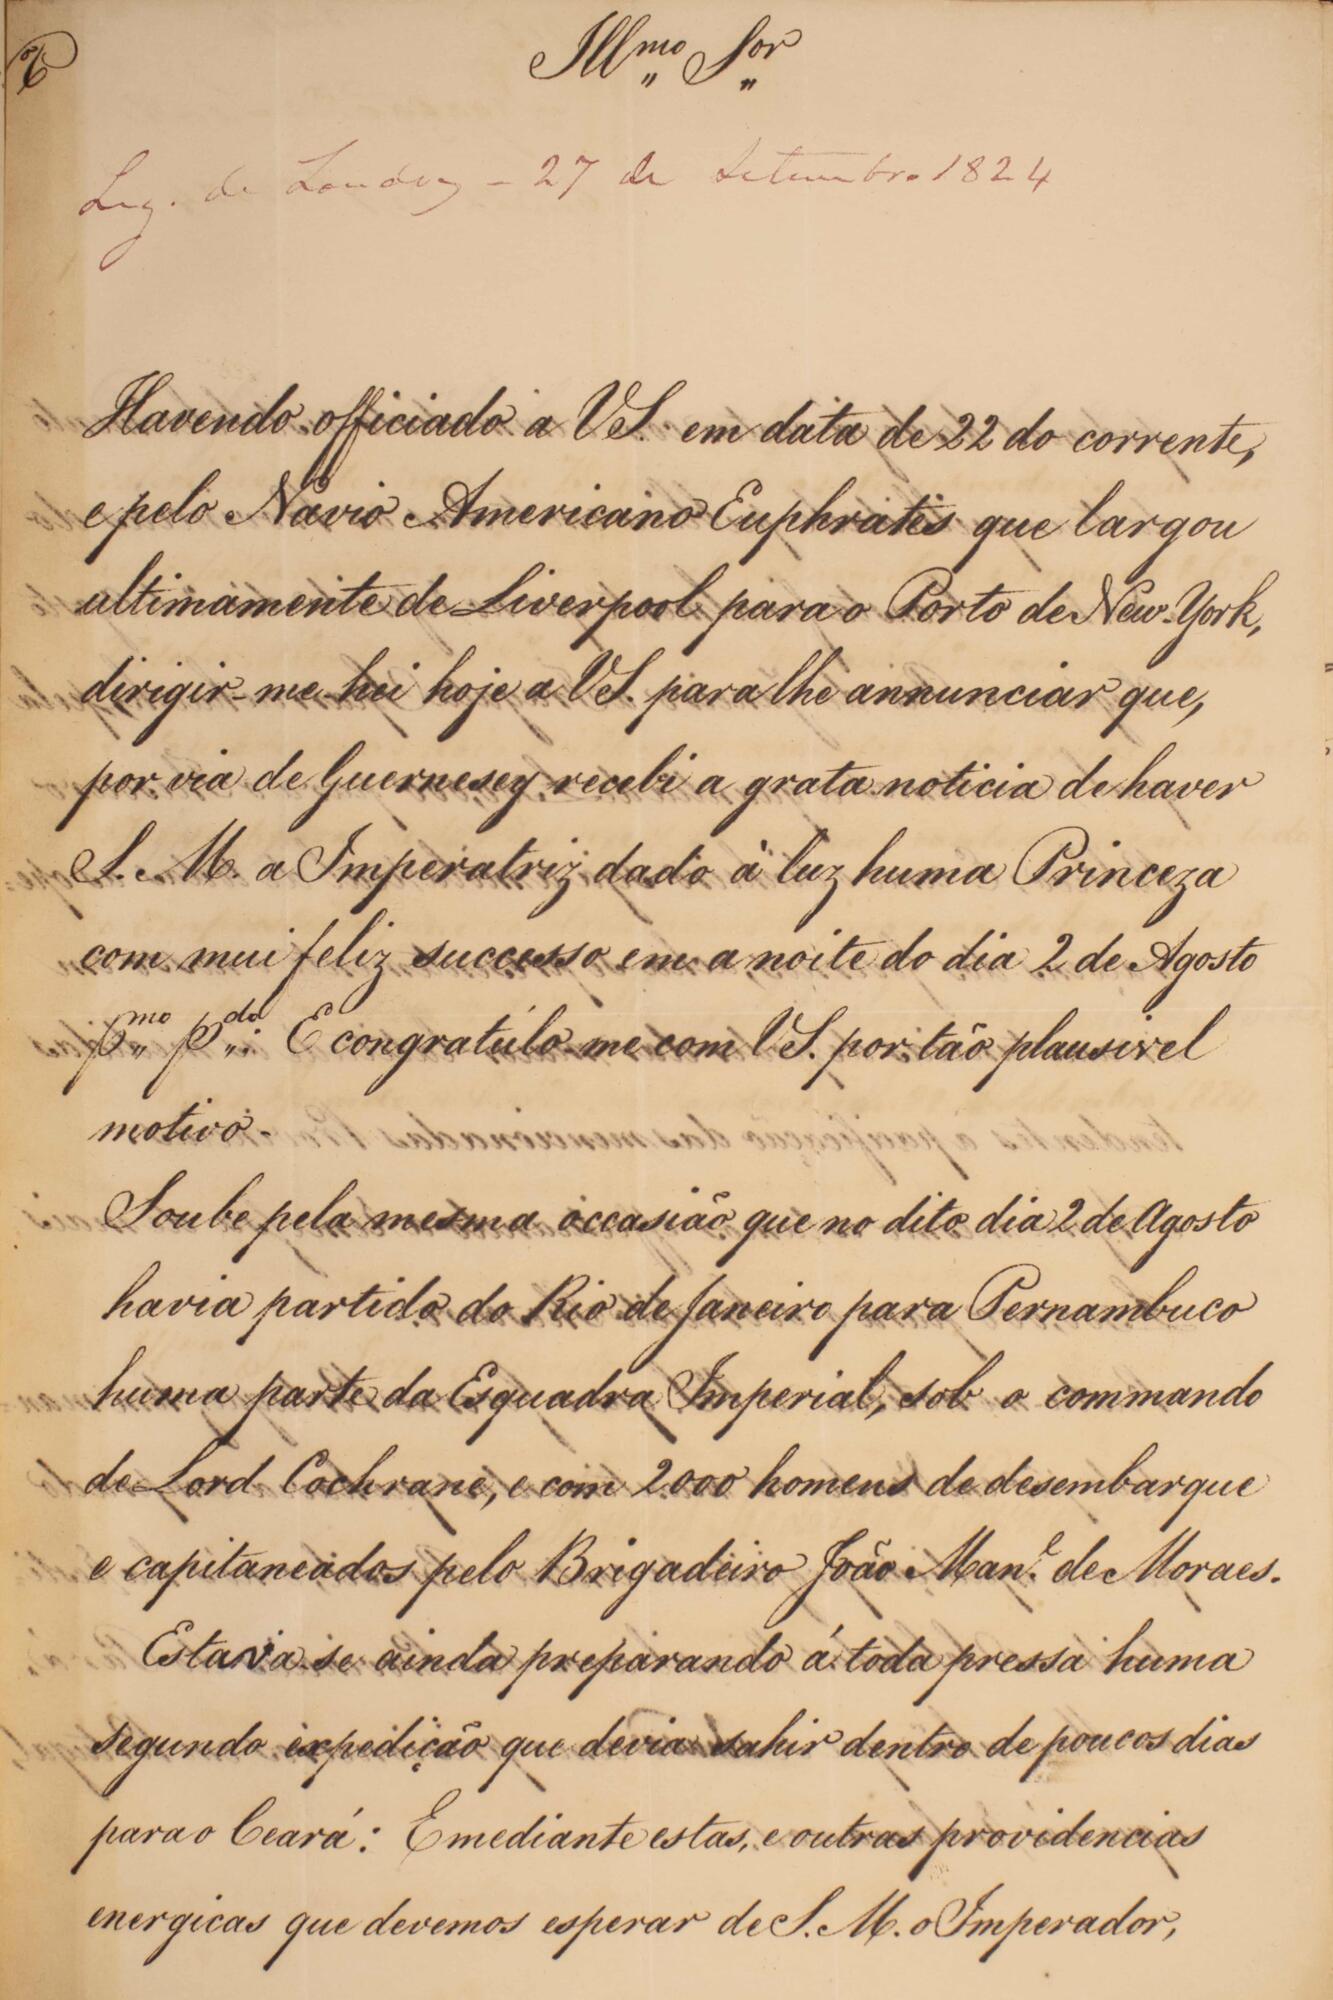 Illmo Sor
Leg. de Londres - 27 de Setembro 1824
Havendo officiado a VS. em data de 22 do corrente,
e pelo Navio Americano Euphrates que largou
ultimamente de Liverpool para o Porto de New-York,
dirigir-me-hei hoje a VS. para lhe annunciar que,
por via de Guernesey recebi a grata noticia de haver
S. M. a Imperatriz dado à luz huma Princeza
com mui feliz successo em a noite do dia 2 de Agosto
pmo pdo: E congratúlo-me com VS. por tão plausivel
motivo.-
Soube pela mesma occasião que no dito dia 2 de Agosto
havia partido do Rio de Janeiro para Pernambuco
huma parte da Esquadra Imperial, sob o commando
de Lord Cochrane, e com 2000 homens de desembarque
e capitaneados pelo Brigadeiro João Manl. de Moraes.
Estava se ainda preparando á toda pressa huma
segundo expedição que devia sahir dentro de poucos dias
para o Ceará: E mediante estas, e outras providencias
energicas que devemos esperar de S. M. o Imperador,